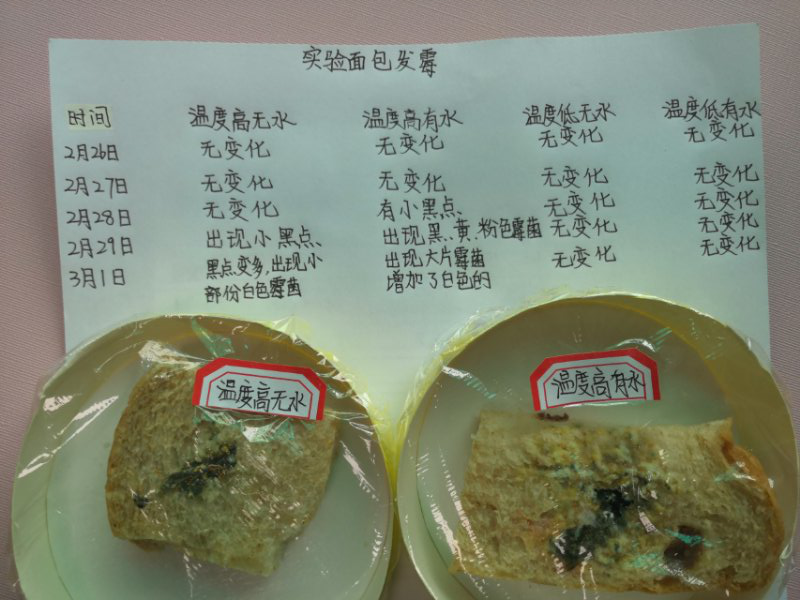 实验面包发霉
时间 温度高无水 温度高有水 温度低无水 温度低有水
2月26日 无变化 无变化 无变化 无变化
2月27日 无变化 无变化 无变化 无变化
2月28日 无变化 有小黑点、 无变化 无变化
2月29日 出现小黑点、 出现黑、黄、粉色霉菌 无变化 无变化
3月1日 黑点变多,出现小 出现大片霉菌 无变化 无变化
部份白色霉菌 增加了白色的
温度高无水
温度高有水